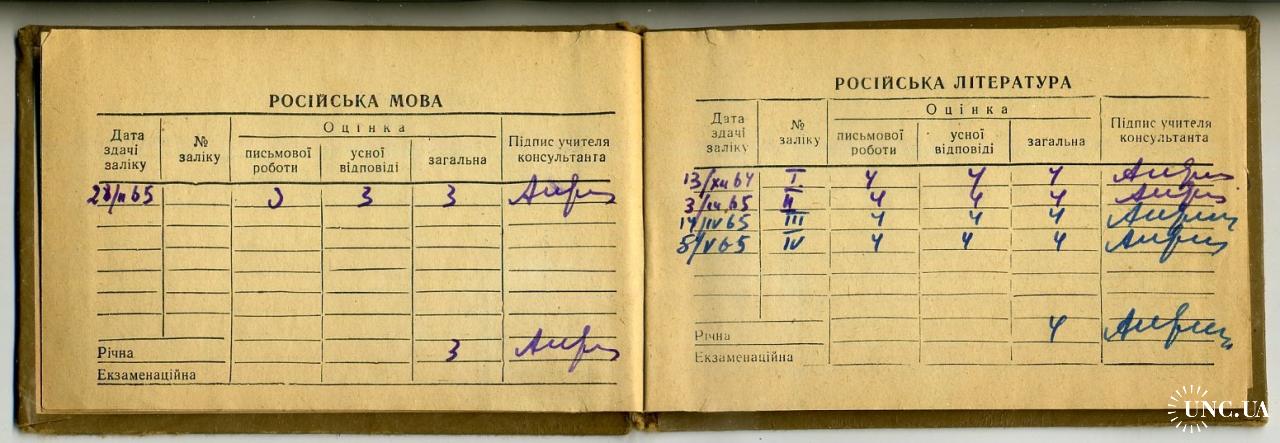 РОСІЙСЬКА МОВА
Дата здачі заліку № заліку Оцінка Підпис учителя консультанта
письмової роботи усної відповіді загальна
3 3 3
Річна 3
Екзаменаційна
РОСІЙСЬКА ЛІТЕРАТУРА
Дата здачі заліку № заліку Оцінка Підпис учителя консультанта
письмової роботи усної відповіді загальна
13/XII 64 I 4 4 4
3/III 65 II 4 4 4
14/IV 65 III 4 4 4
5/V 65 IV 4 4 4
Річна 4
Екзаменаційна
UNC.UA